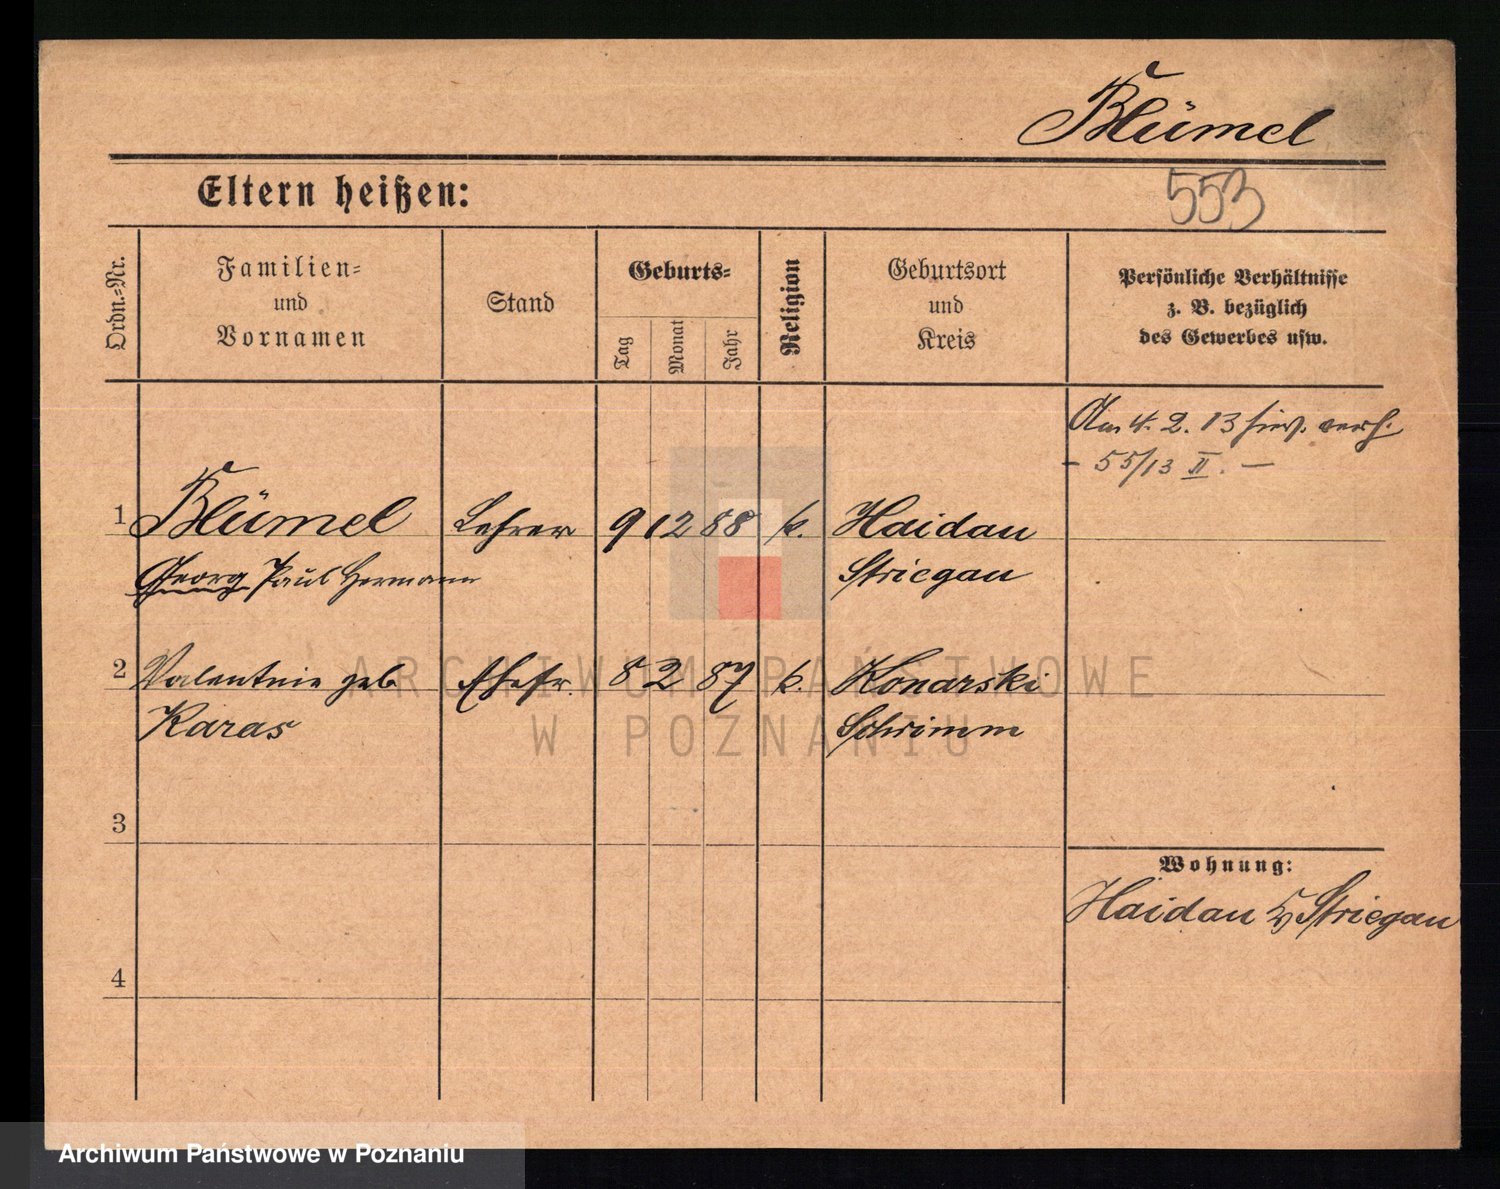 Blümel
Eltern heißen:
553
Ordn.-Nr.
Familien-
und
Vornamen
Stand
Geburts-
Tag
Monat
Jahr
Religion
Geburtsort
und
Kreis
Persönliche Verhältnisse
z. B. bezüglich
des Gewerbes usw.
Am 4. 2. 13 hier verh.
- 55/13 II. -
1 Blümel Lehrer 9 12 88 k. Haidau
Georg Paul Hermann Striegau
2 Valentine geb Ehefr. 8 2 87 k. Konarski
Karas Schrimm
3
Wohnung:
Haidau Striegau
4
ARCHIWUM PAŃSTWOWE
W POZNANIU
Archiwum Państwowe w Poznaniu